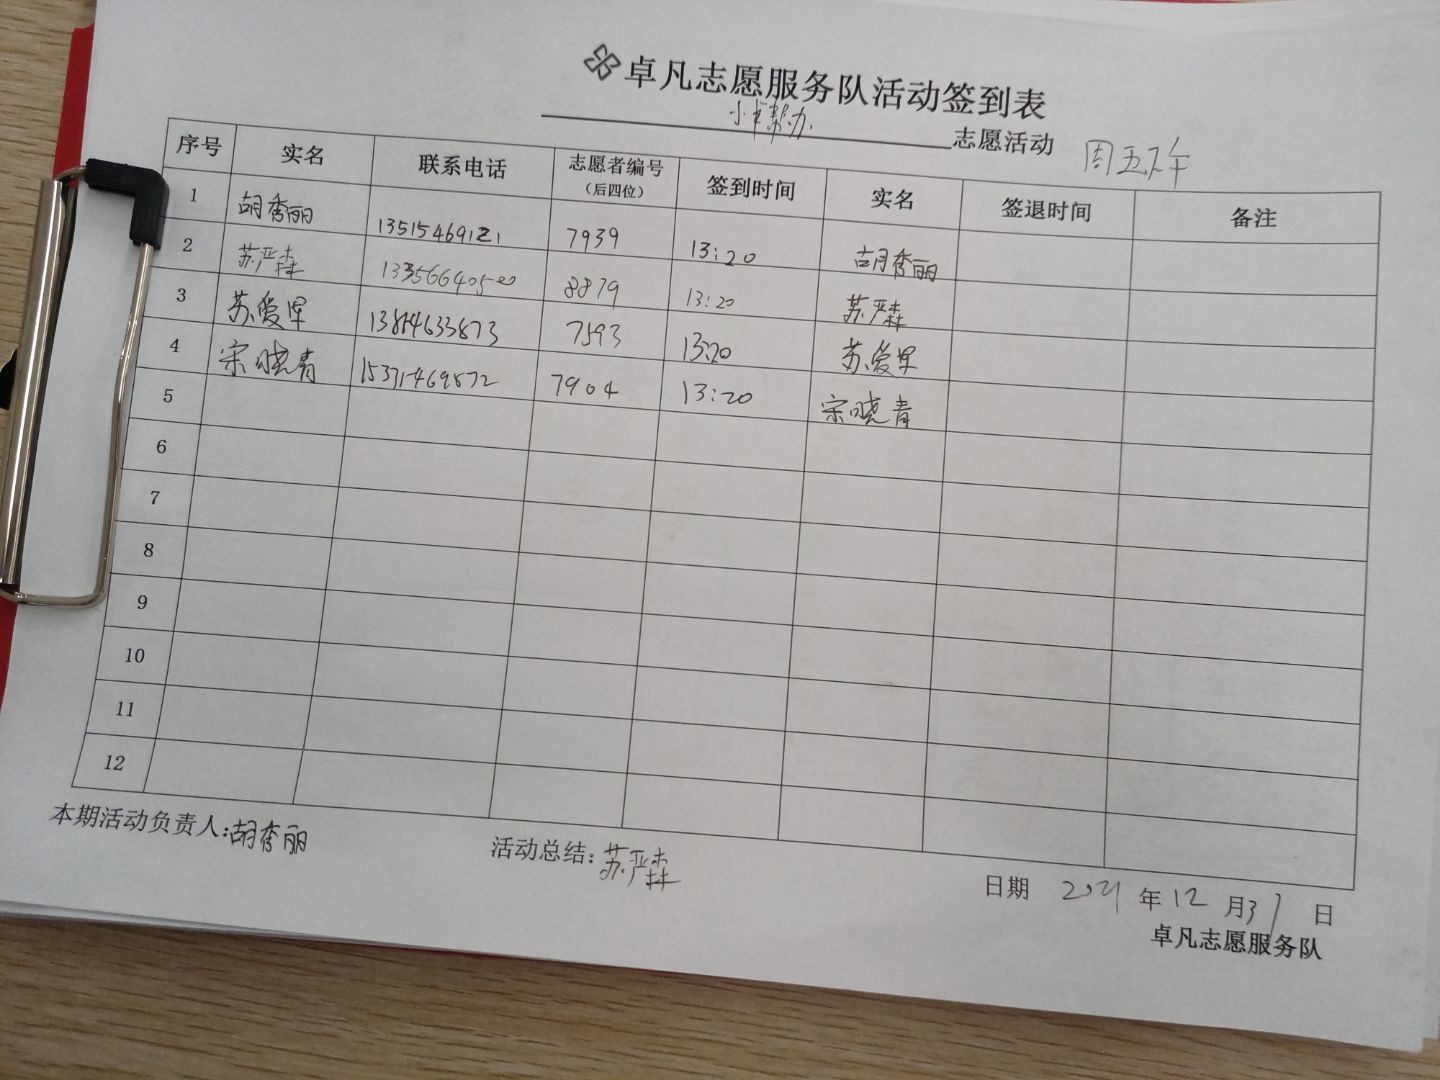 卓凡志愿服务队活动签到表
小卓帮办 志愿活动 周五下午
序号 实名 联系电话 志愿者编号（后四位） 签到时间 实名 签退时间 备注
1 胡秀丽 13515469121 7939 13:20 胡秀丽
2 苏严森 13356640500 8879 13:20 苏严森
3 苏爱军 13814633873 7593 13:20 苏爱军
4 宋晓青 15371469872 7904 13:20 宋晓青
5
6
7
8
9
10
11
12
本期活动负责人:胡秀丽 活动总结:苏严森 日期 2021年12月31日
卓凡志愿服务队